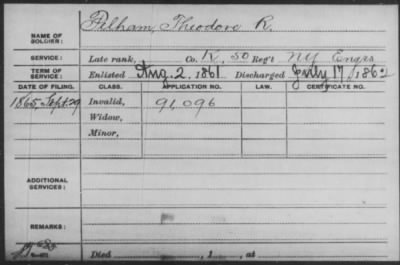 NAME OF SOLDIER: Pelham, Theodore R.
SERVICE: Late rank, Co. K, 50 Reg't NY Engrs
TERM OF SERVICE: Enlisted Aug. 2, 1861 Discharged July 17, 1862
DATE OF FILING. CLASS. APPLICATION NO. LAW. CERTIFICATE NO.
1865, Sept. 29 Invalid, 91,096
Widow,
Minor,
ADDITIONAL SERVICES:
REMARKS:
Died , 1 , at